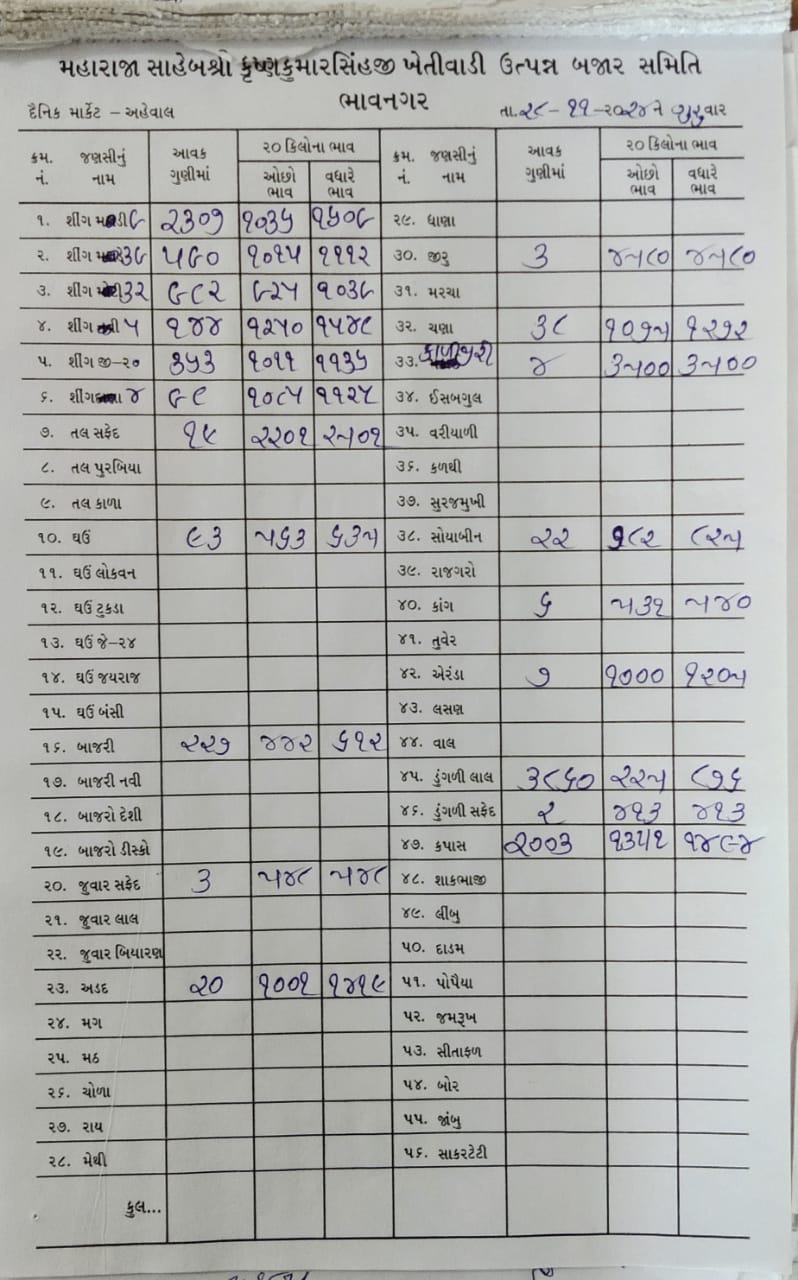 મહારાજા સાહેબશ્રી કૃષ્ણકુમારસિંહજી ખેતીવાડી ઉત્પન્ન બજાર સમિતિ
ભાવનગર
દૈનિક માર્કેટ – અહેવાલ તા.૨૮-૧૧-૨૦૨૪ને ગુરુવાર
ક્રમ. નં. જણસીનું નામ આવક ગુણીમાં ૨૦ કિલોના ભાવ ઓછો ભાવ વધારે ભાવ ક્રમ. નં. જણસીનું નામ આવક ગુણીમાં ૨૦ કિલોના ભાવ ઓછો ભાવ વધારે ભાવ
૧. શીંગ ૨૩૦૭ ૧૦૩૬ ૨૯. ધાણા
૨. શીંગ ૩૯ ૫૬૦ ૧૦૧૫ ૧૧૧૨ ૩૦. જીરૂ ૩ ૪૫૮૦ ૪૫૮૦
૩. શીંગ ૩૨ ૯૮૨ ૯૨૫ ૧૦૩૯ ૩૧. મરચા
૪. શીંગ ૫ ૧૪૪ ૧૨૫૦ ૧૫૪૮ ૩૨. ચણા ૩૮ ૧૦૭૫ ૧૨૭૨
૫. શીંગ જી-૨૦ ૧૦૧૧ ૧૧૩૬ ૩૩. કાળીજીરી ૪ ૩૫૦૦ ૩૫૦૦
૬. શીંગ ૪ ૧૦૮૫ ૧૧૨૫ ૩૪. ઈસબગુલ
૭. તલ સફેદ ૧૯ ૨૨૦૧ ૨૫૦૧ ૩૫. વરીયાળી
૮. તલ પુરબિયા ૩૬. કળથી
૯. તલ કાળા ૩૭. સુરજમુખી
૧૦. ઘઉં ૯૩ ૫૬૩ ૬૩૫ ૩૮. સોયાબીન ૨૨ ૭૮૨ ૮૨૫
૧૧. ઘઉં લોકવન ૩૯. રાજગરો
૧૨. ઘઉં ટુકડા ૪૦. કાંગ ૬ ૫૩૧ ૫૪૦
૧૩. ઘઉં જે-૨૪ ૪૧. તુવેર
૧૪. ઘઉં જયરાજ ૪૨. એરંડા ૭ ૧૦૦૦ ૧૨૦૫
૧૫. ઘઉં બંસી ૪૩. લસણ
૧૬. બાજરી ૨૨૭ ૪૪૨ ૬૧૨ ૪૪. વાલ
૧૭. બાજરી નવી ૪૫. ડુંગળી લાલ ૩૮૬૦ ૨૨૫ ૮૭૬
૧૮. બાજરો દેશી ૪૬. ડુંગળી સફેદ ૨ ૪૧૩ ૪૧૩
૧૯. બાજરો ડીસ્કો ૪૭. કપાસ ૨૦૦૩ ૧૩૫૧ ૧૪૯૪
૨૦. જુવાર સફેદ ૩ ૫૪૮ ૫૪૮ ૪૮. શાકભાજી
૨૧. જુવાર લાલ ૪૯. લીંબુ
૨૨. જુવાર બિયારણ ૫૦. દાડમ
૨૩. અડદ ૨૦ ૧૦૦૧ ૧૪૧૯ ૫૧. પોપૈયા
૨૪. મગ ૫૨. જમરૂખ
૨૫. મઠ ૫૩. સીતાફળ
૨૬. ચોળા ૫૪. બોર
૨૭. રાય ૫૫. જાંબુ
૨૮. મેથી ૫૬. સાકરટેટી
કુલ...